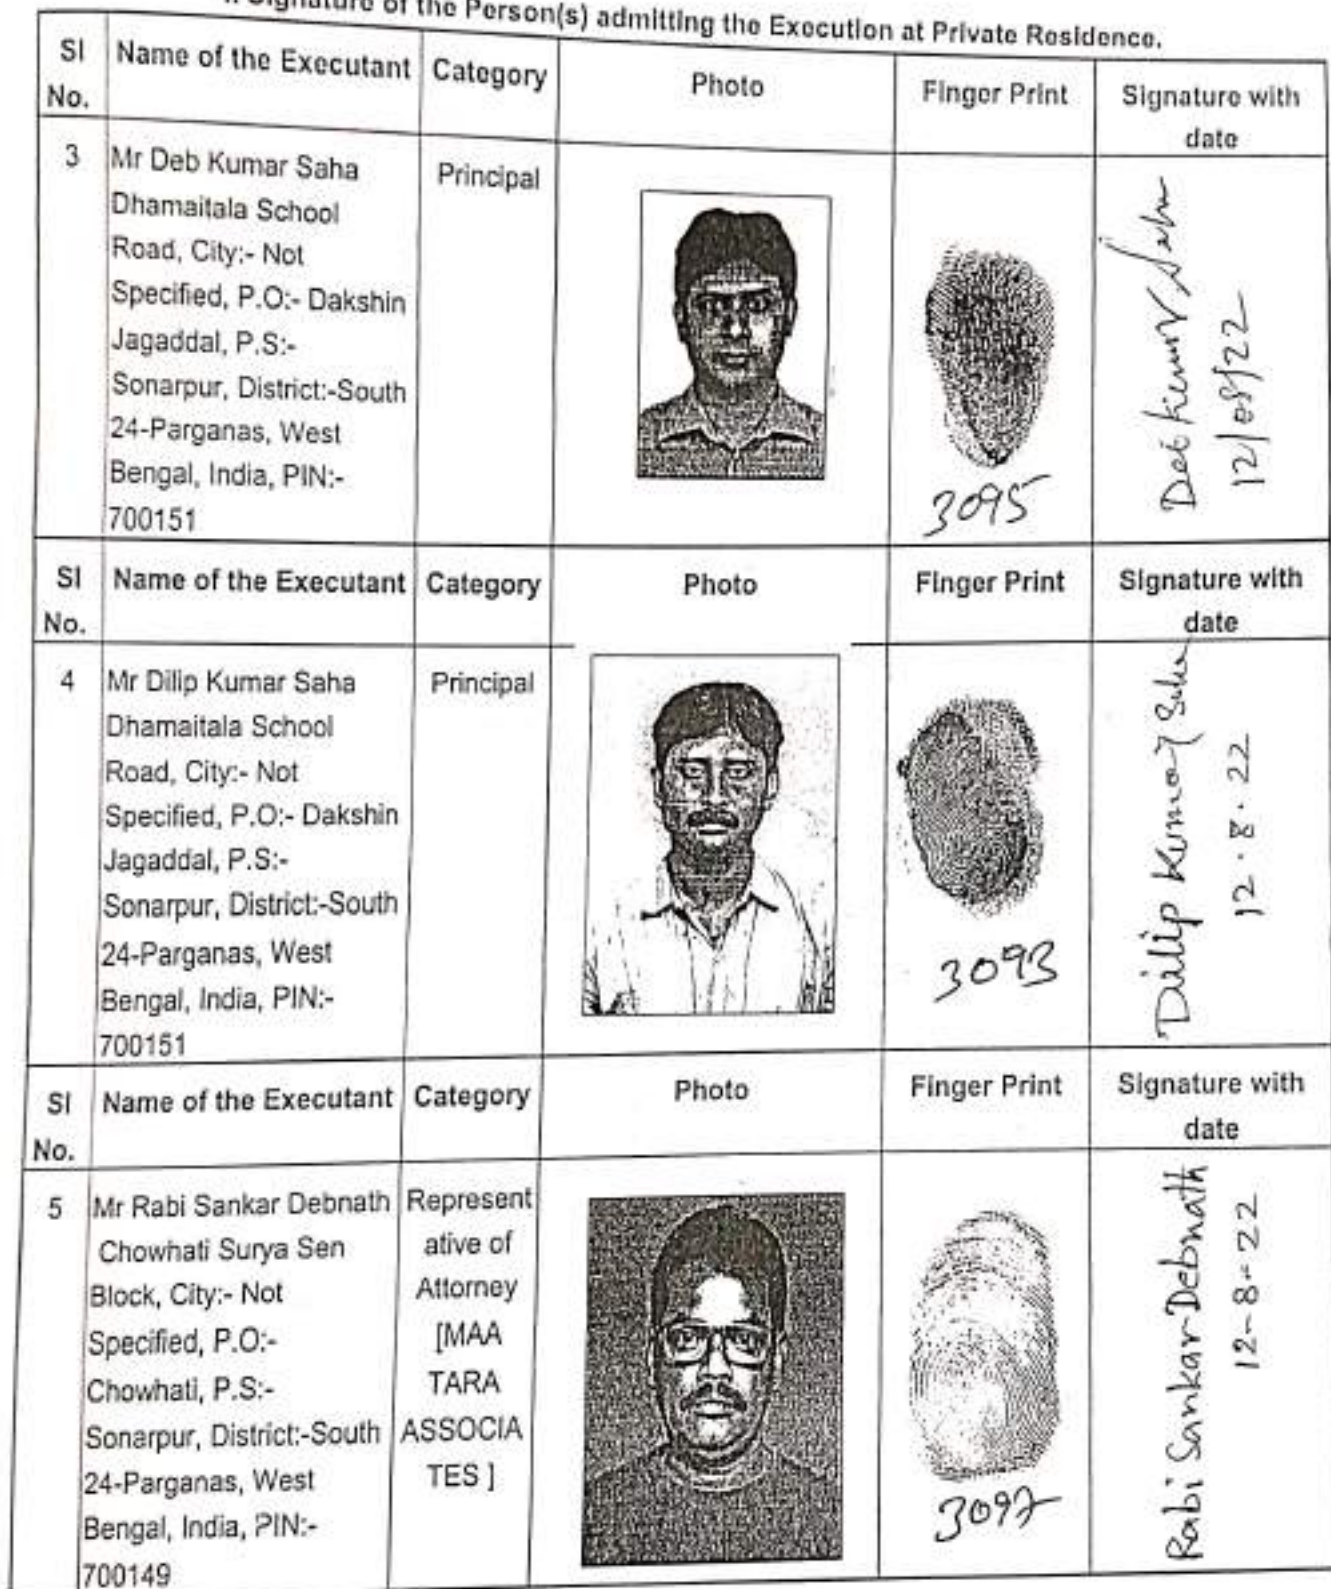 Signature of the Person(s) admitting the Execution at Private Residence.
Sl No. Name of the Executant Category Photo Finger Print Signature with date
3 Mr Deb Kumar Saha Principal
Dhamaitala School
Road, City:- Not
Specified, P.O:- Dakshin
Jagaddal, P.S:-
Sonarpur, District:-South
24-Parganas, West
Bengal, India, PIN:-
700151
3095
Deb Kumar Saha
12/08/22
Sl No. Name of the Executant Category Photo Finger Print Signature with date
4 Mr Dilip Kumar Saha Principal
Dhamaitala School
Road, City:- Not
Specified, P.O:- Dakshin
Jagaddal, P.S:-
Sonarpur, District:-South
24-Parganas, West
Bengal, India, PIN:-
700151
3093
Dilip Kumar Saha
12.8.22
Sl No. Name of the Executant Category Photo Finger Print Signature with date
5 Mr Rabi Sankar Debnath
Chowhati Surya Sen
Block, City:- Not
Specified, P.O:-
Chowhati, P.S:-
Sonarpur, District:-South
24-Parganas, West
Bengal, India, PIN:-
700149
Represent
ative of
Attorney
[MAA
TARA
ASSOCIA
TES ]
3097
Rabi Sankar Debnath
12-8-22